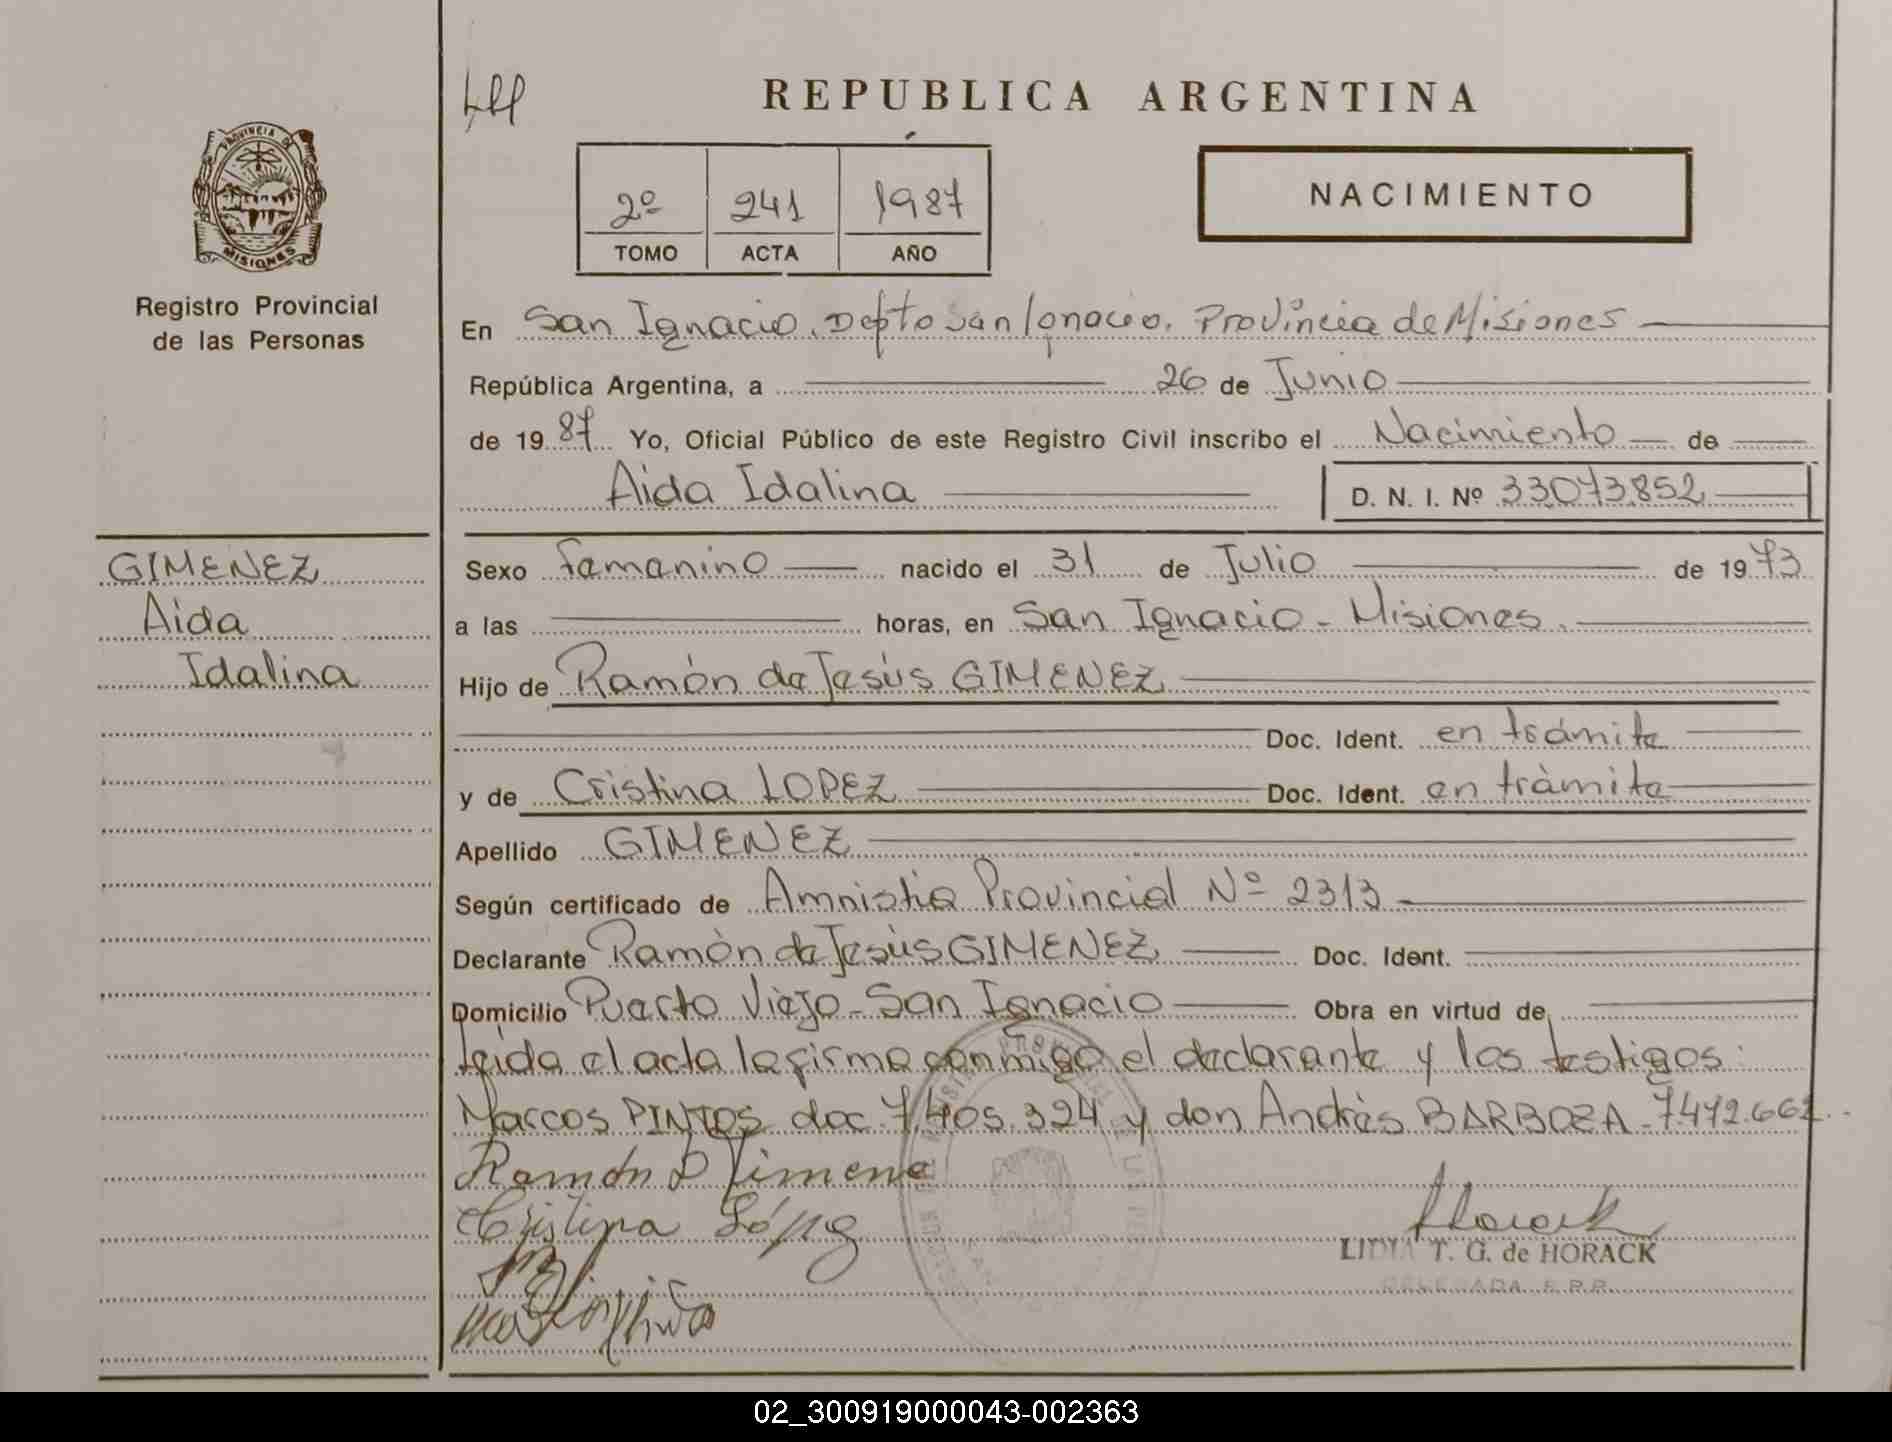 REPUBLICA ARGENTINA
PROVINCIA DE
MISIONES
Registro Provincial
de las Personas
2º 241 1987
TOMO ACTA AÑO
NACIMIENTO
En San Ignacio, Depto San Ignacio. Provincia de Misiones
República Argentina, a 26 de Junio
de 1987 Yo, Oficial Público de este Registro Civil inscribo el Nacimiento de
Aida Idalina D. N. I. Nº 33073852
GIMENEZ
Aida
Idalina
Sexo famanino nacido el 31 de Julio de 1973
a las horas, en San Ignacio - Misiones.
Hijo de Ramón de Jesús GIMENEZ
Doc. Ident. en trámite
y de Cristina LOPEZ Doc. Ident. en tràmite
Apellido GIMENEZ
Según certificado de Amnistia Provincial Nº 2313
Declarante Ramòn de Jesùs GIMENEZ Doc. Ident.
Domicilio Puerto Viejo - San Ignacio Obra en virtud de
Leida el acta la firma conmigo el declarante y los testigos:
Marcos PINTOS doc. 7.405.324 y don Andrès BARBOZA - 7.472.662
Ramón D Jimene
Cristina López
LIDIA T. G. de HORACK
DELEGADA F.P.P.
02_300919000043-002363